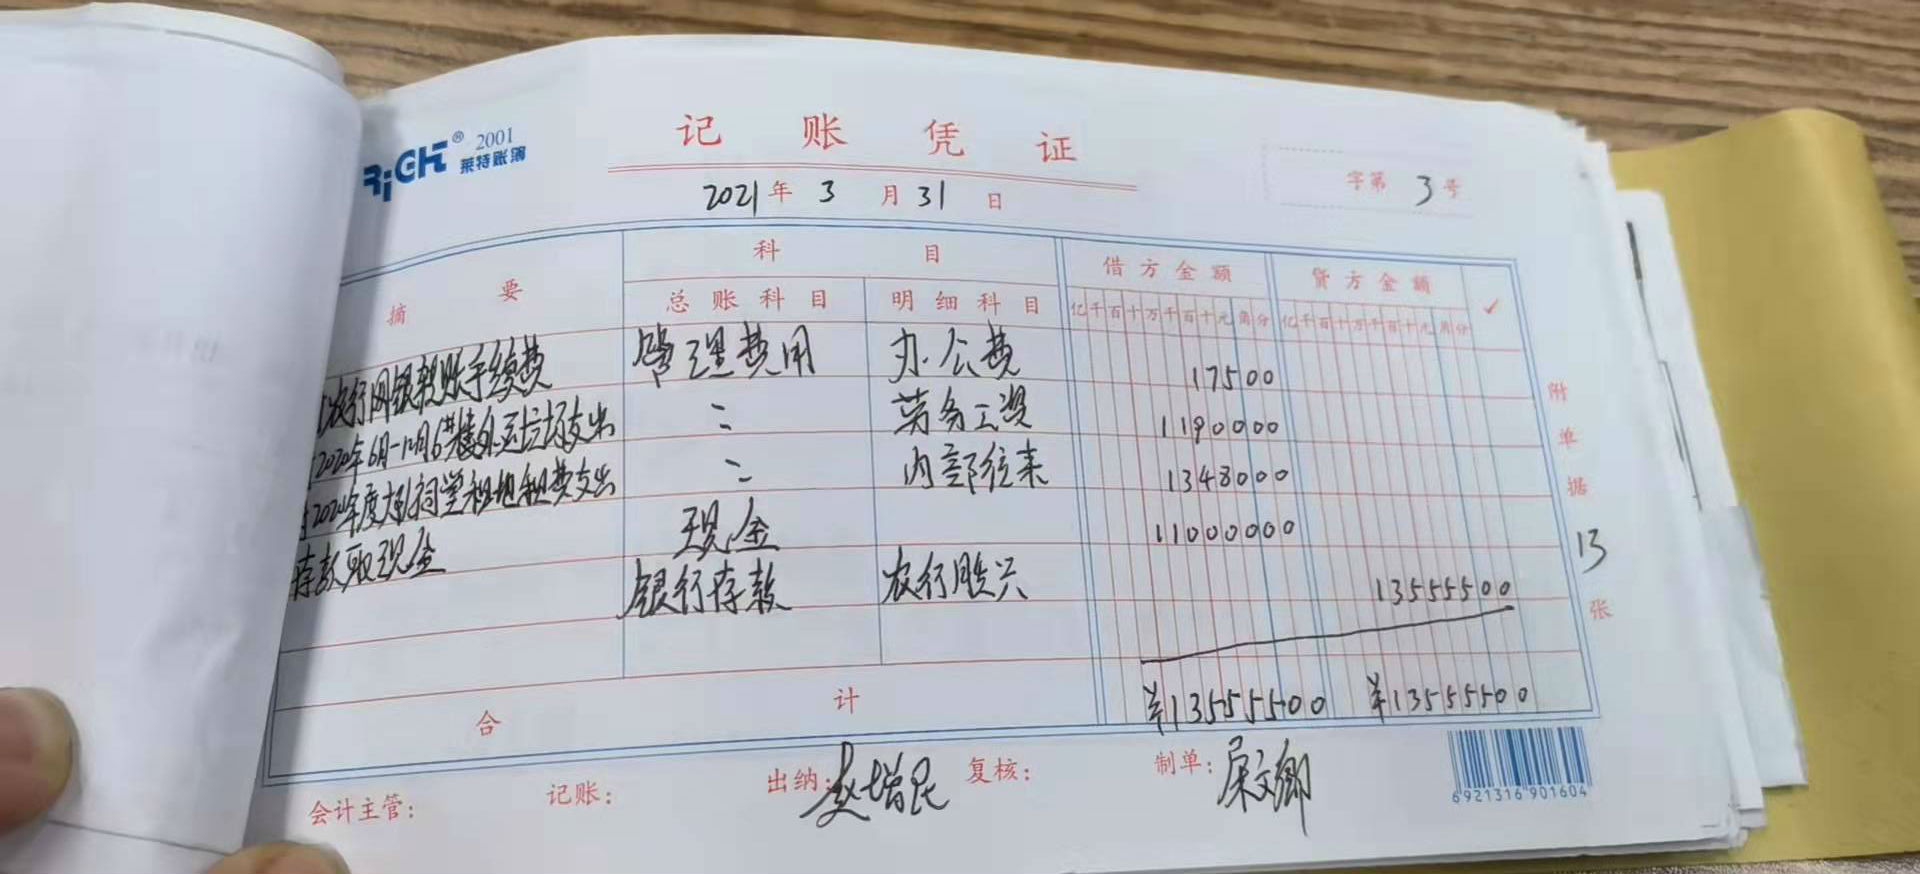 RiGHT® 2001
莱特账簿
记账凭证
2021年3月31日
字第3号
摘要 科目 借方金额 贷方金额 ✓
总账科目 明细科目 亿千百十万千百十元角分 亿千百十万千百十元角分
农行网银转账手续费 管理费用 办公费 17500
2020年6月-12月6#楼外运垃圾支出 〃 劳务工资 1190000
年度大刘祠堂租地租费支出 〃 内部往来 1348000
存款取现金 现金 11000000
银行存款 农行胜兴 13555500
合计 ¥13555500 ¥13555500
附单据13张
会计主管: 记账: 出纳:赵增民 复核: 制单:
6921316901604